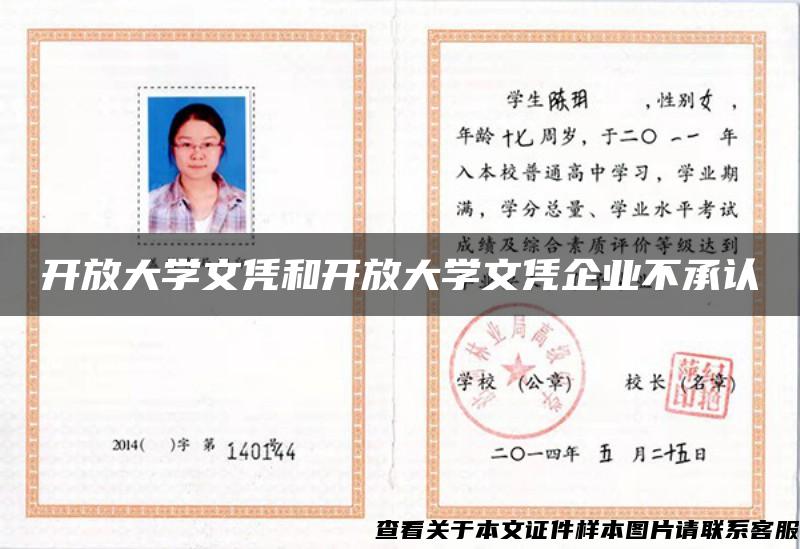 学生陈玥 ，性别女，
年龄十七周岁，于二〇一一年
入本校普通高中学习，学业期
满，学分总量、学业水平考试
成绩及综合素质评价等级达到
开放大学文凭和开放大学文凭企业不承认
林业局高级中学
学校 (公章) 校长 (名章)
2014( )字 第 140144 号
二〇一四年 五 月二十五日
查看关于本文证件样本图片请联系客服